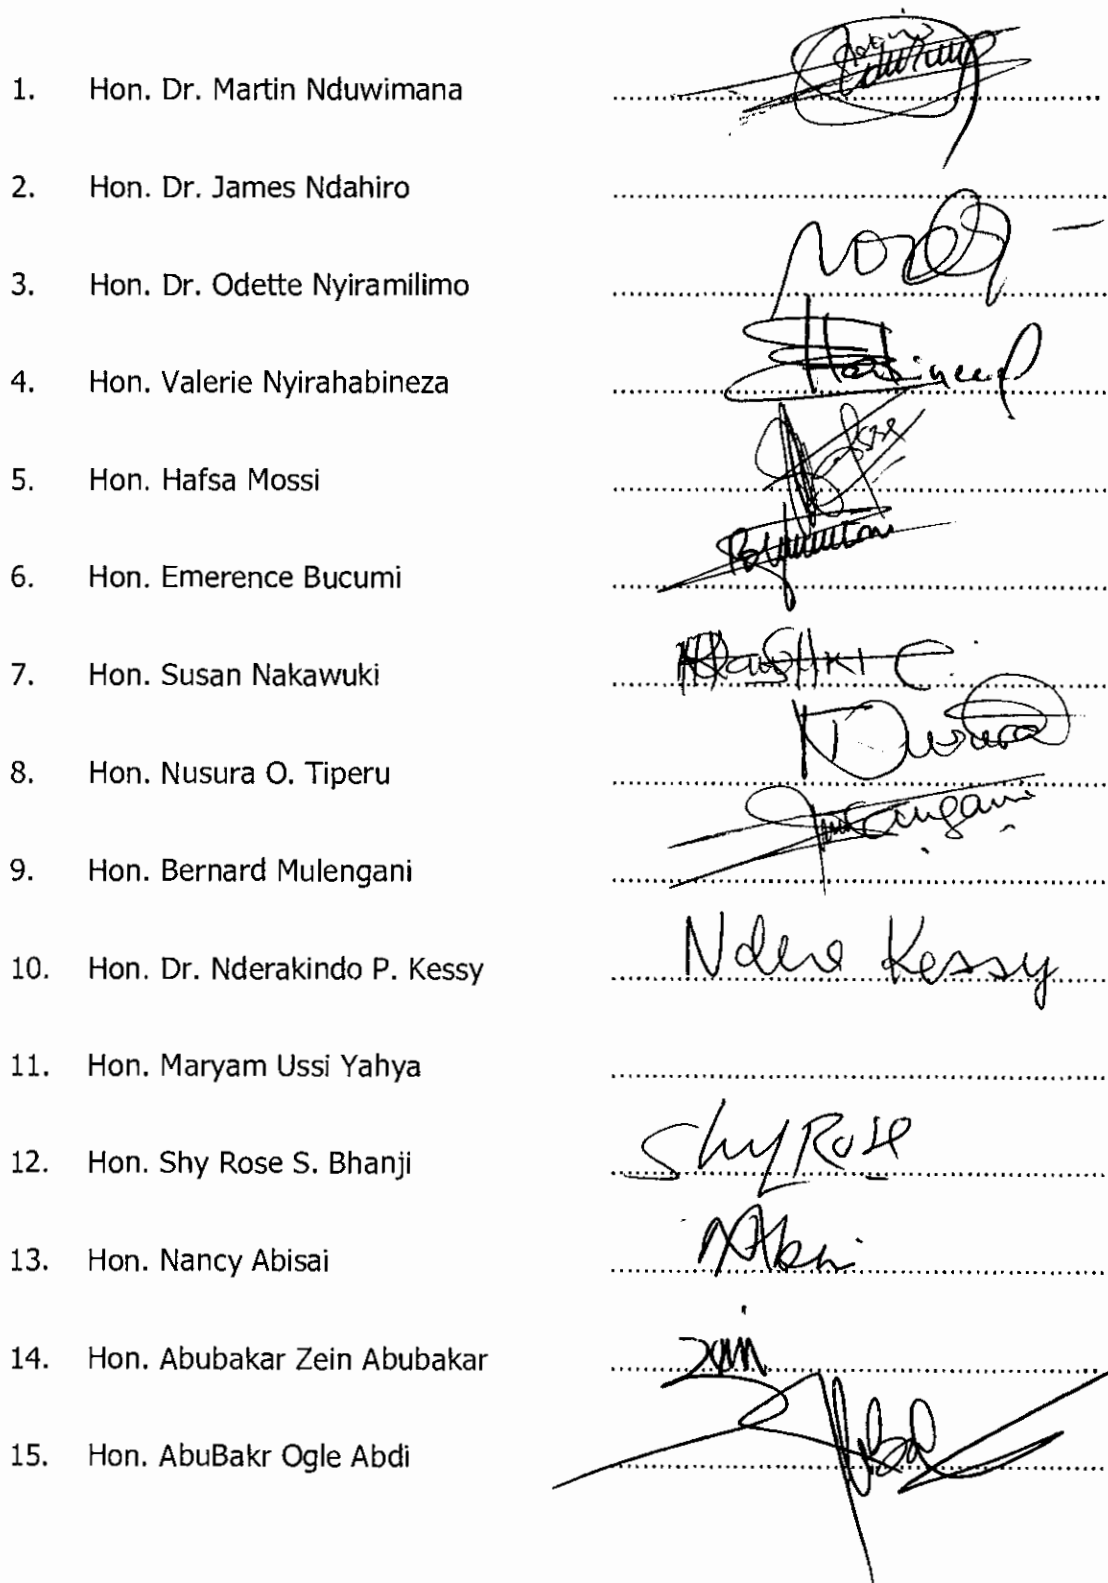 1. Hon. Dr. Martin Nduwimana
2. Hon. Dr. James Ndahiro
3. Hon. Dr. Odette Nyiramilimo
4. Hon. Valerie Nyirahabineza
5. Hon. Hafsa Mossi
6. Hon. Emerence Bucumi
7. Hon. Susan Nakawuki
8. Hon. Nusura O. Tiperu
9. Hon. Bernard Mulengani
10. Hon. Dr. Nderakindo P. Kessy Ndera Kessy
11. Hon. Maryam Ussi Yahya
12. Hon. Shy Rose S. Bhanji Shy Rose
13. Hon. Nancy Abisai
14. Hon. Abubakar Zein Abubakar Zein
15. Hon. AbuBakr Ogle Abdi